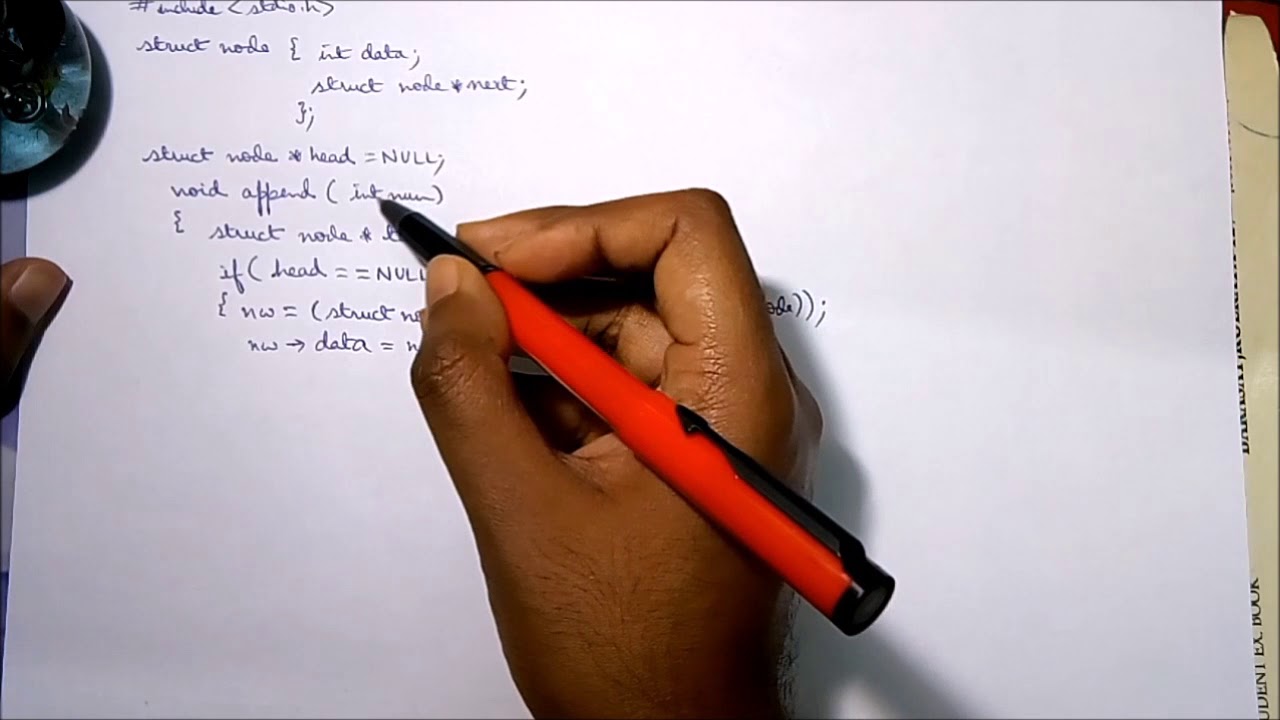 #include <stdio.h>
struct node { int data;
struct node *next;
};
struct node * head = NULL;
void append ( int num)
{ struct node *
if ( head == NULL
{ nw = (struct ode));
nw → data =
UDENT EX. BOOK